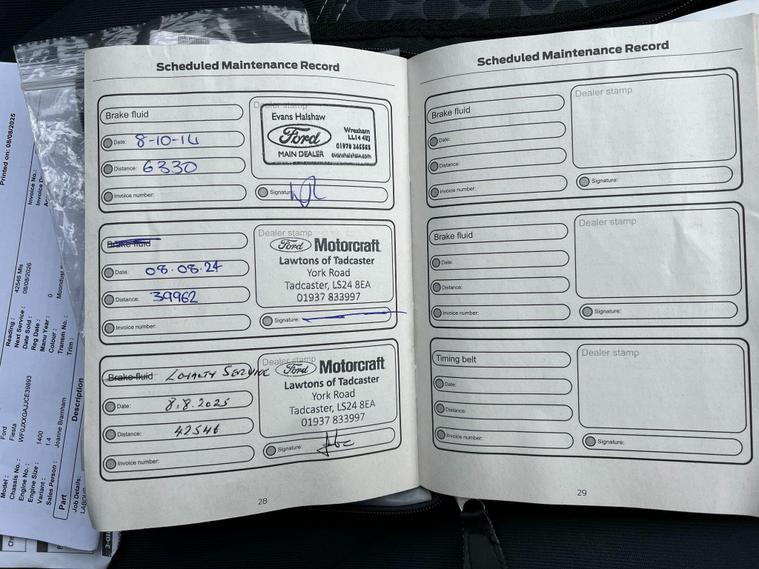 Scheduled Maintenance Record
Brake fluid
Date: 8-10-14
Distance: 6330
Invoice number:
Dealer stamp
Evans Halshaw
Ford
Wrexham
LL14 4EJ
01978 365585
MAIN DEALER evanshalshaw.com
Signature:
Brake fluid
Date: 08.08.24
Distance: 39962
Invoice number:
Dealer stamp
Ford Motorcraft
Lawtons of Tadcaster
York Road
Tadcaster, LS24 8EA
01937 833997
Signature:
Brake fluid LOYALTY SERVICE
Date: 8.8.2025
Distance: 42546
Invoice number:
Dealer stamp
Ford Motorcraft
Lawtons of Tadcaster
York Road
Tadcaster, LS24 8EA
01937 833997
Signature:
28
Scheduled Maintenance Record
Brake fluid
Date:
Distance:
Invoice number:
Dealer stamp
Signature:
Brake fluid
Date:
Distance:
Invoice number:
Dealer stamp
Signature:
Timing belt
Date:
Distance:
Invoice number:
Dealer stamp
Signature:
29
Printed on: 08/08/2025
Invoice No.
Reading: 42546 Mls
Next Service: 08/08/2026
Date Sold:
Reg Date:
Manu Year: 0
Colour:
Transm No.:
Trim:
Model: Ford
Fiesta
Chassis No.:
Engine No.:
Engine Size: 1400
Variant: 1.4
Sales Person: Joanne Bramham
Part Description
Job Details: